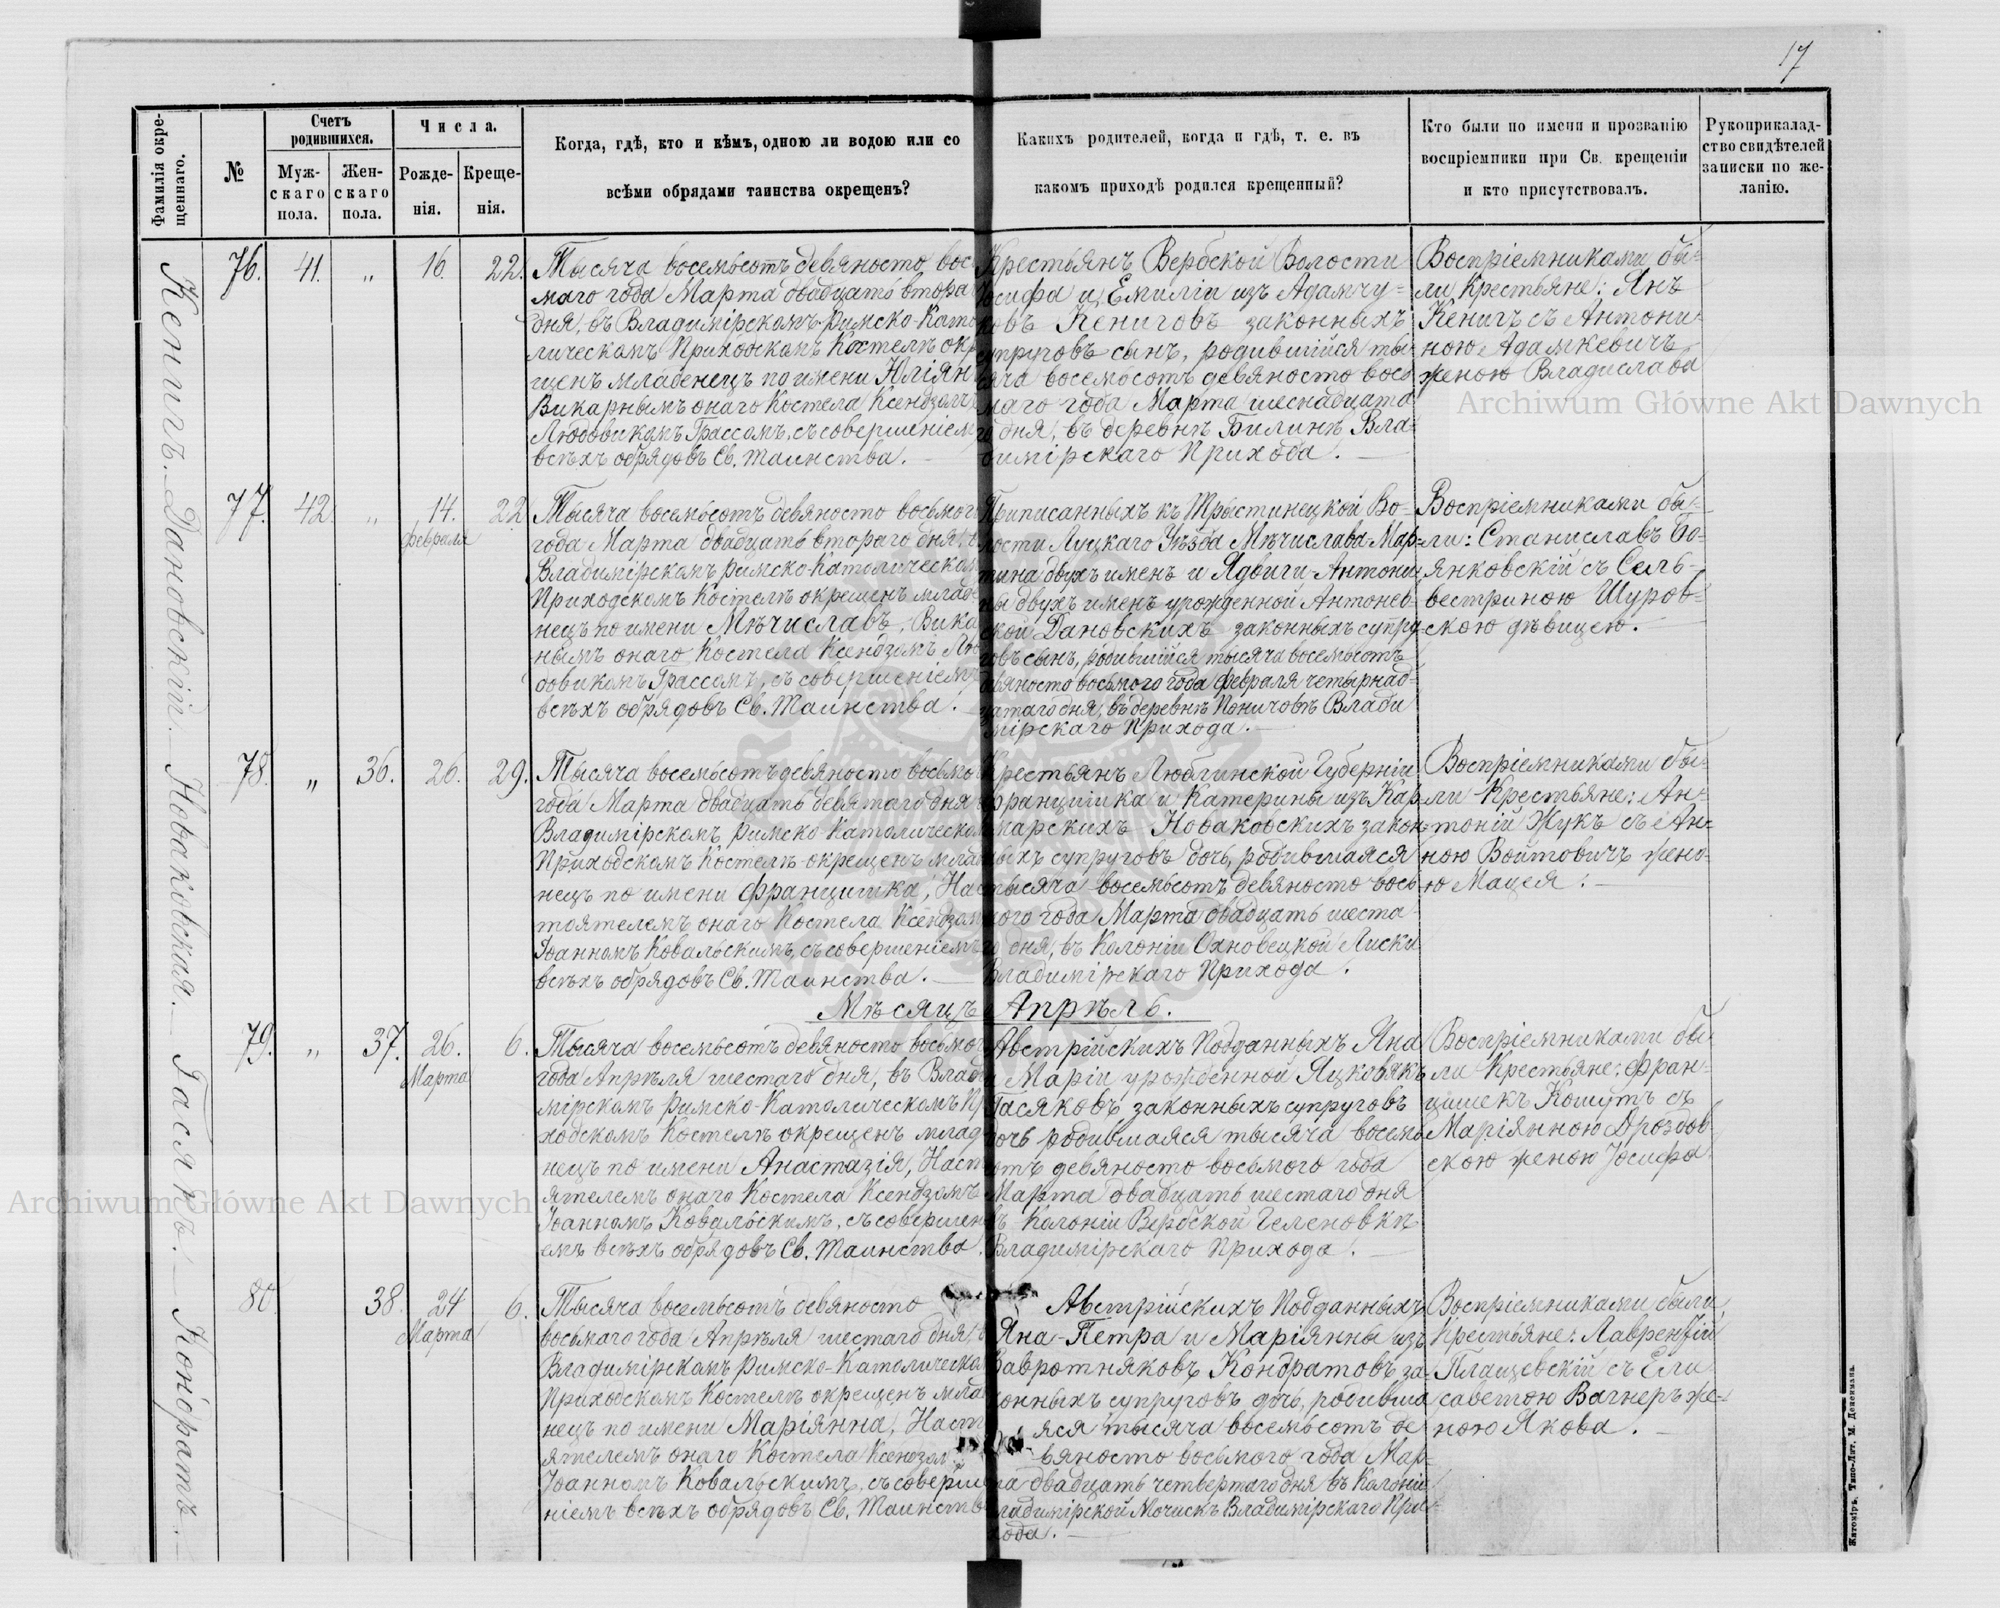 17
Фамилія окре-
щеннаго.
№
Счетъ
родившихся.
Муж-
скаго
пола.
Жен-
скаго
пола.
Числа.
Рожде-
нія.
Креще-
нія.
Когда, гдѣ, кто и кѣмъ, одною ли водою или со
всѣми обрядами таинства окрещенъ?
Какихъ родителей, когда и гдѣ, т. е. въ
какомъ приходѣ родился крещенный?
Кто были по имени и прозванію
воспріемники при Св. крещеніи
и кто присутствовалъ.
Рукоприкалад-
ство свидѣтелей
записки по же-
ланію.
Кенигъ. Дановскій. Новаковская. Гасякъ. Кондратъ.
76. 41. „ 16. 22.
Тысяча восемьсотъ девяносто вос
маго года Марта двадцать втора
дня, въ Владимірскомъ Римско-Като
лическомъ Приходскомъ Костелѣ окр
щенъ младенецъ по имени Юліян
Викарнымъ онаго Костела Ксендзомъ
Людовикомъ Грассомъ, съ совершеніем
всѣхъ обрядовъ Св. Таинства.
Крестьянъ Вербской Волости
Іосифа и Емиліи изъ Адамчу-
ковъ Кениговъ законныхъ
супруговъ сынъ, родившійся ты-
сяча восемьсотъ девяносто вось
маго года Марта шеснадцата
го дня, въ деревнѣ Билинѣ Вла-
димірскаго Прихода.
Воспріемниками бы-
ли Крестьяне: Янъ
Кенигъ съ Антони-
ною Адамкевичъ
женою Владислава
77. 42. „ 14. 22
февраля
Тысяча восемьсотъ девяносто восьмог
года Марта двадцать втораго дня, в
Владимірскомъ Римско-Католическом
Приходскомъ Костелѣ окрещенъ младе
нецъ по имени Мѣчиславъ, Вика
нымъ онаго Костела Ксендзомъ Лю
довикомъ Грассомъ, съ совершеніемъ
всѣхъ обрядовъ Св. Таинства.
Приписанныхъ къ Трыстинецкой Во-
лости Луцкаго Уѣзда Мѣчислава Мар-
тина двухъ именъ и Ядвиги-Антони
ны двухъ именъ урожденной Антонев-
ской Дановскихъ законныхъ супру-
говъ сынъ, родившійся тысяча восемьсотъ
девяносто восьмого года февраля четырнад-
цатаго дня, въ деревнѣ Поничовѣ Влади
мірскаго Прихода.
Воспріемниками бы-
ли: Станиславъ Бо-
янковскій съ Сель-
вестриною Щуров-
скою дѣвицею.
78. „ 36. 26. 29.
Тысяча восемьсотъ девяносто восьмо
года Марта двадцать девятаго дня
Владимірскомъ Римско-Католическом
Приходскомъ Костелѣ окрещенъ мла
нецъ по имени Францишка, Нас
тоятелемъ онаго Костела Ксендзом
Іоанномъ Ковальскимъ, съ совершеніемъ
всѣхъ обрядовъ Св. Таинства.
Крестьянъ Люблинской Губерніи
Францишка и Катерины изъ Кар
марскихъ Новаковскихъ закон-
ныхъ супруговъ дочь, родившаяся
тысяча восемьсотъ девяносто вось
мого года Марта двадцать шеста
го дня, въ Колоніи Охновецкой Лиски
Владимірскаго Прихода.
Воспріемниками бы-
ли Крестьяне: Ан-
тоній Жукъ съ Ан-
ною Войтовичъ жено-
ю Мацея.
Мѣсяцъ Апрѣль.
79. „ 37. 26. 6.
Марта
Тысяча восемьсотъ девяносто восьмог
года Апрѣля шестаго дня, въ Влад
мірскомъ Римско-Католическомъ Пр
ходскомъ Костелѣ окрещенъ млад
нецъ по имени Анастазія, Наст
ятелемъ онаго Костела Ксендзомъ
Іоанномъ Ковальскимъ, съ совершені
емъ всѣхъ обрядовъ Св. Таинства.
Австрійскихъ Подданныхъ Яна
и Маріи урожденной Яцковякъ
Гасяковъ, законныхъ супруговъ
дочь родившаяся тысяча восемь
сотъ девяносто восьмого года
Марта двадцать шестаго дня
въ Колоніи Вербской Геленовкѣ
Владимірскаго Прихода.
Воспріемниками бы
ли Крестьяне: Фран-
цишекъ Кошутъ съ
Маріянною Дроздов
скою женою Іосифа
80 38. 24 6.
Марта
Тысяча восемьсотъ девяносто
восьмаго года Апрѣля шестаго дня, в
Владимірскомъ Римско-Католическо
Приходскомъ Костелѣ окрещенъ мла
нецъ по имени Маріянна, Наст
ятелемъ онаго Костела Ксендзом
Іоанномъ Ковальскимъ, съ соверше
ніемъ всѣхъ обрядовъ Св. Таинств
Австрійскихъ Подданныхъ
Яна-Петра и Маріянны изъ
Вавротняковъ Кондратовъ за-
конныхъ супруговъ дочь, родивша
яся тысяча восемьсотъ де
вяносто восьмого года Мар-
та двадцать четвертаго дня въ Колоніи
Владимірской Мочискъ Владимірскаго При-
хода.
Воспріемниками были
Крестьяне: Лаврентій
Плащевскій съ Ели
саветою Вагнеръ же-
ною Якова.
Житоміръ, Типо-Лит. М. Дененмана.
Archiwum Główne Akt Dawnych
Archiwum Główne Akt Dawnych